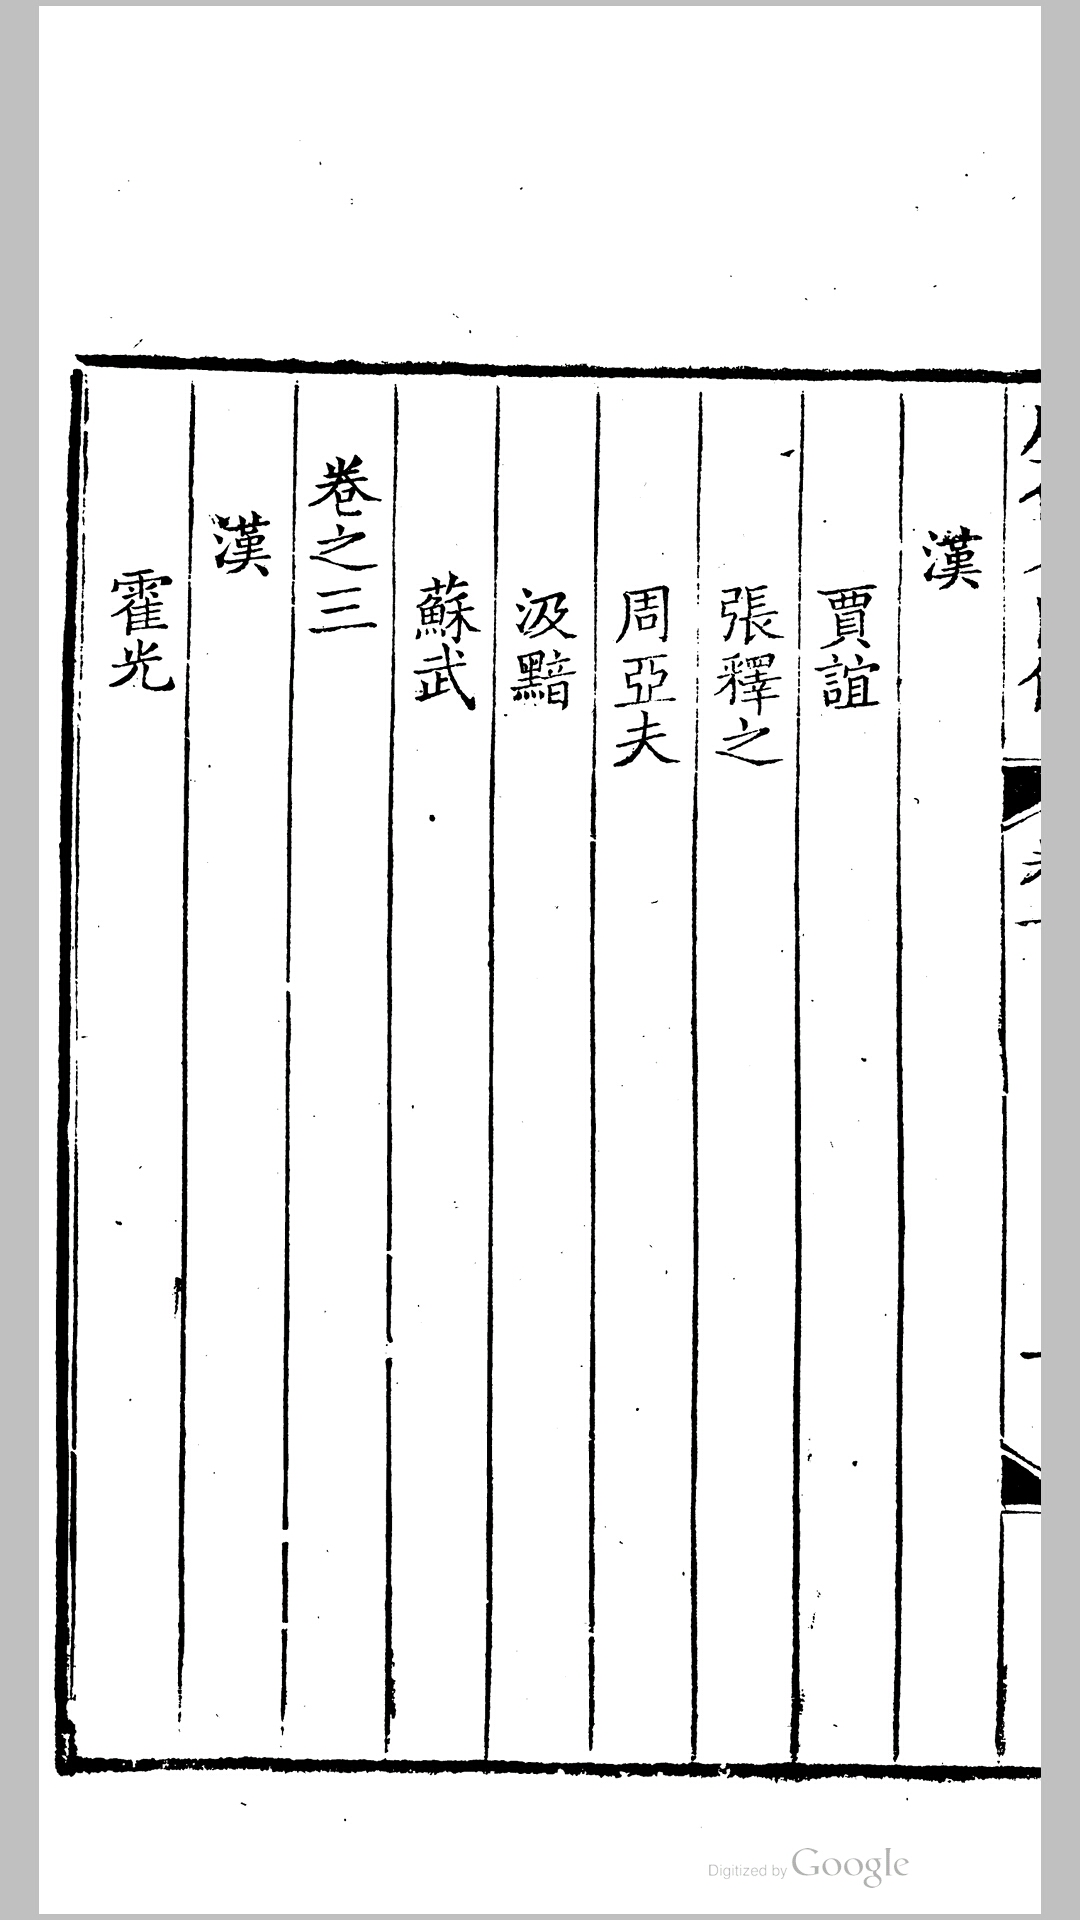 漢
賈誼
張釋之
周亞夫
汲黯
蘇武
卷之三
漢
霍光
Digitized by Google